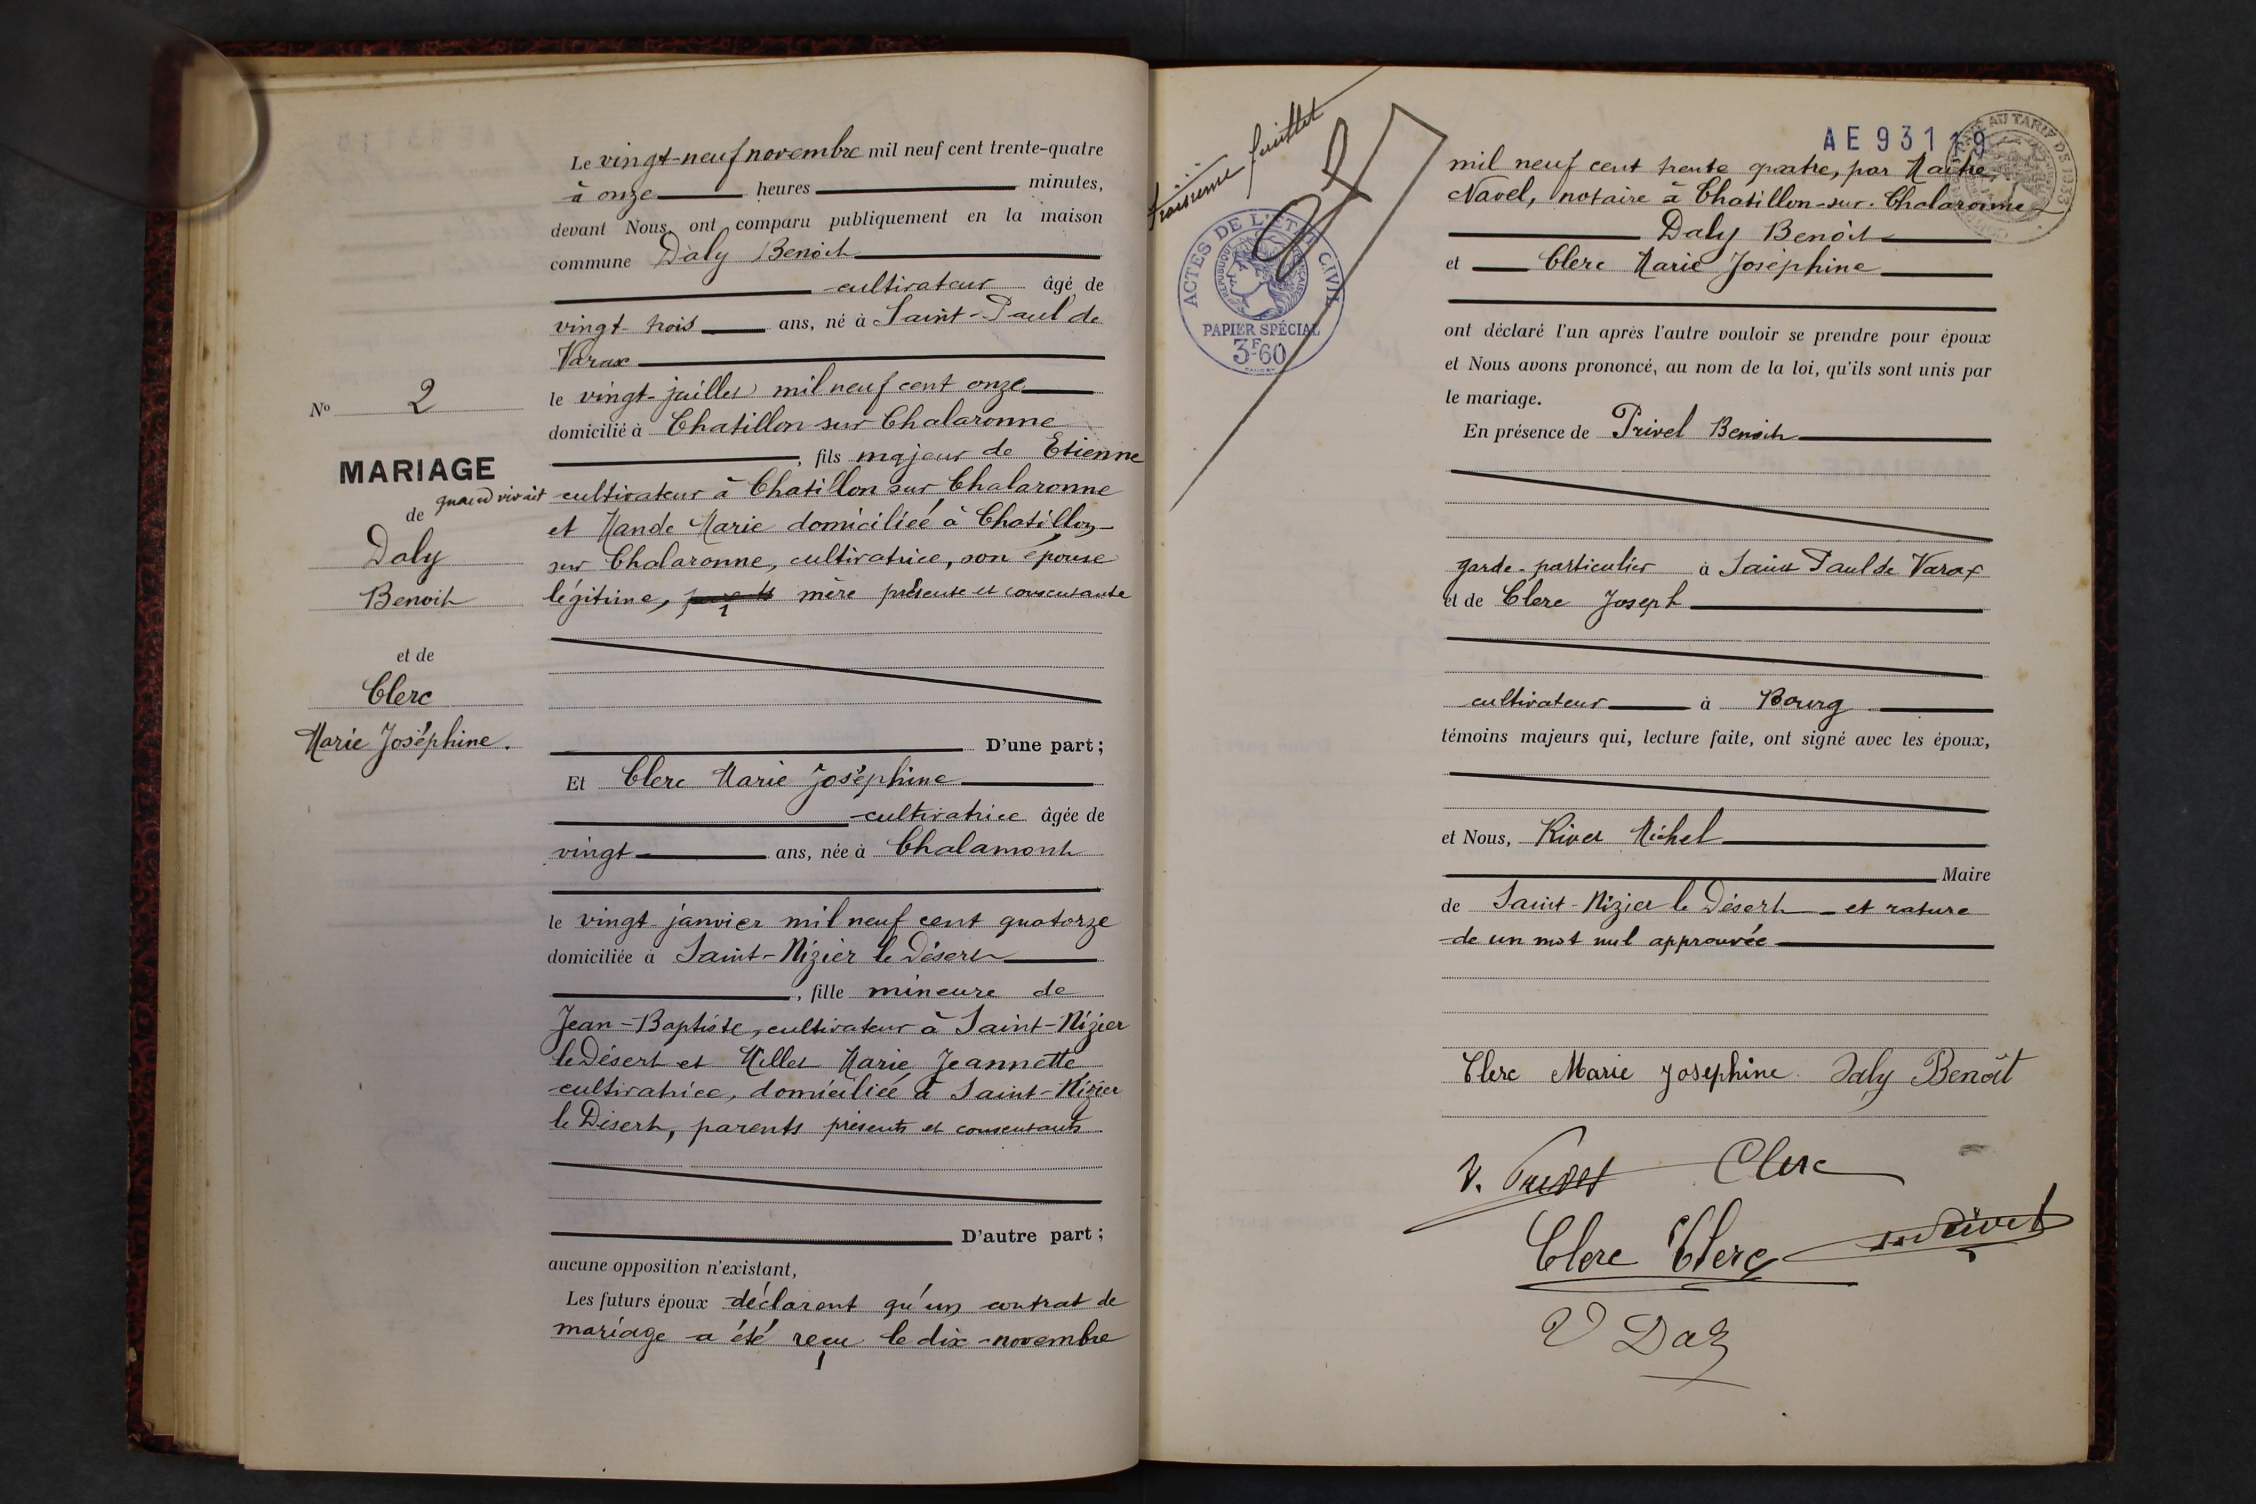 Le vingt-neuf novembre mil neuf cent trente-quatre
à onze heures minutes,
devant Nous, ont comparu publiquement en la maison
commune Daly Benoit
cultivateur âgé de
vingt-trois ans, né à Saint-Paul de
Varax
le vingt-juillet mil neuf cent onze
domicilié à Chatillon sur Chalaronne
, fils majeur de Etienne
quand vivait cultivateur à Chatillon sur Chalaronne
et Mande Marie domiciliée à Chatillon
sur Chalaronne, cultivatrice, son épouse
légitime, mère présente et consentante
D'une part;
Et Clerc Marie Joséphine
cultivatrice âgée de
vingt ans, née à Chalamont
le vingt-janvier mil neuf cent quatorze
domiciliée à Saint-Nizier le Désert
, fille mineure de
Jean-Baptiste, cultivateur à Saint-Nizier
le Désert et Millet Marie Jeannette
cultivatrice, domiciliée à Saint-Nizier
le Désert, parents présents et consentants
D'autre part;
aucune opposition n'existant,
Les futurs époux déclarent qu'un contrat de
mariage a été reçu le dix-novembre
No 2
MARIAGE
de
Daly
Benoit
et de
Clerc
Marie Joséphine.
troisième feuillet
ACTES DE L'ETAT CIVIL
REPUBLIQUE FRANCAISE
PAPIER SPÉCIAL
3F60
AE 93119
mil neuf cent trente quatre, par Maitre
Navel, notaire à Chatillon-sur-Chalaronne
Daly Benoit
et Clerc Marie Joséphine
ont déclaré l'un après l'autre vouloir se prendre pour époux
et Nous avons prononcé, au nom de la loi, qu'ils sont unis par
le mariage.
En présence de Privel Benoit
garde-particulier à Saint Paul de Varax
et de Clerc Joseph
cultivateur à Bourg
témoins majeurs qui, lecture faite, ont signé avec les époux,
et Nous, River Michel
Maire
de Saint-Nizier le Désert et rature
de un mot nul approuvée
Clerc Marie Josephine Daly Benoît
Clerc
Clerc Clerc